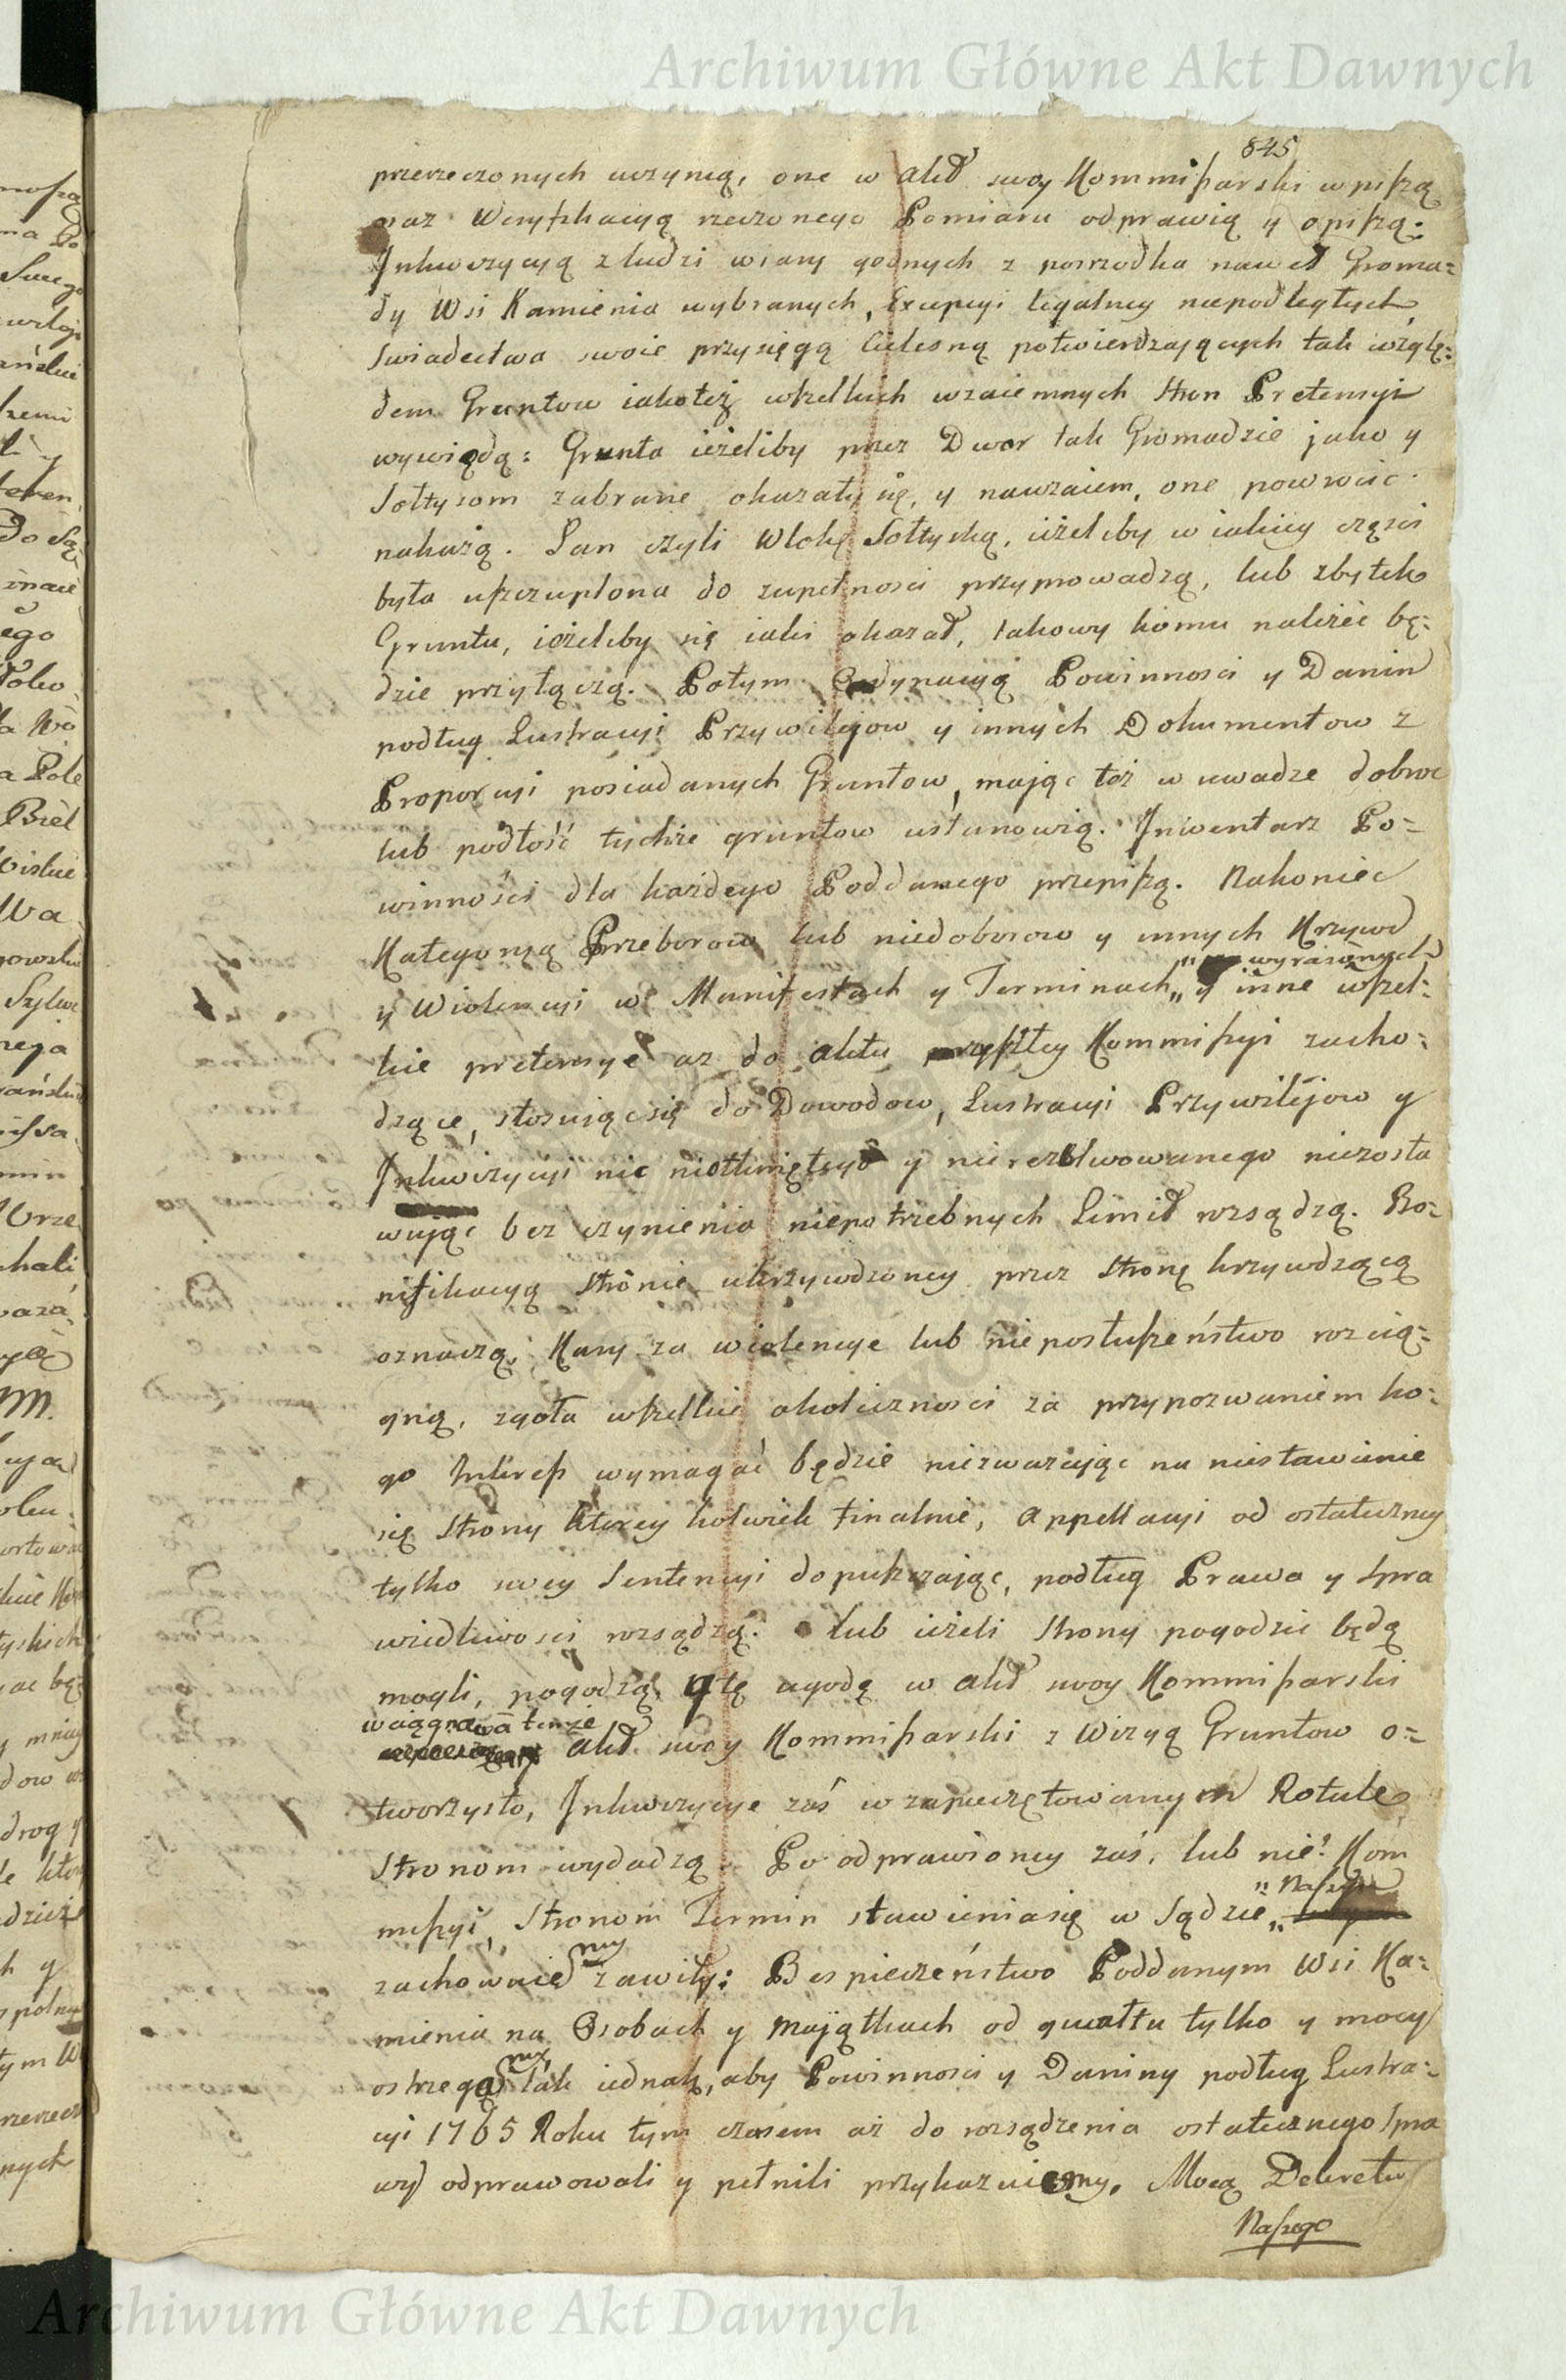 Archiwum Główne Akt Dawnych
845
przerzeczonych uczynią, one w akt swoy Kommißarski wpiszą
oraz Weryfikacyą rzeczonego Pomiaru odprawią y opiszą:
Inkwizycyą z ludzi wiary godnych z posrzodka nawet Groma=
dy Wsi Kamienia wybranych, Excepcyi legalney niepodległych
swiadectwa swoie przysięgą Cielesną potwierdzaiących tak wzglę=
dem Gruntow iakoteż wszelkich wzaiemnych stron Pretensyi
wywiodą: Grunta ieżeliby przez Dwor tak Gromadzie jako y
Sołtysom zabrane okazały się, y nawzaiem, one powrocic
nakażą. Łan czyli Wlokę Sołtyską, ieżeliby w iakiey części
była uszczuplona do zupełnosci przyprowadzą, lub zbytek
Gruntu, ieżeliby się iaki okazał, takowy komu należeć bę=
dzie przyłączą. Potym Ordynacyą Powinnosci y Danin
podług Lustracyi Przywilejow y innych Dokumentow z
Proporcyi posiadanych Gruntow, mając też w uwadze dobroc
lub podłość tychże gruntow ustanowią. Inwentarz Po=
winności dla każdego Poddanego przepiszą. Nakoniec
Kategoryą Przeborow lub niedoborow y innych Krzywd
wyrażonych
y Wiolencyi w Manifestach y Terminach „ y inne wszel=
kie pretensye aż do aktu przyszłey Kommißyi zacho=
dzące, stosuiąc się do Dowodow, Lustracyi Przywilejow y
Inkwizycyi nic nietkniętego y nierezolwowanego niezosta
wując bez czynienia niepotrzebnych Limit rozsądzą. Bo=
nifikacyą stronie ukrzywdzoney przez stronę krzywdzącą
oznaczą, Kary za wiolencye lub nieposłuszeństwo rozcią=
gną, zgoła wszelkie okolicznosci za przypozwaniem ko=
go Interess wymagać będzie niezważając na niestawienie
się strony ktorey kolwiek finalnie, Appellacyi od ostateczney
tylko swey Sentencyi dopuszczając, podług Prawa y spra
wiedliwosci rozsądzą: lub ieżeli strony pogodzic będą
mogli, pogodzą, y tę ugodę w akt swoy Kommißarski
wciągną a tenże
akt swoy Kommißarski z Wizyą Gruntow o=
tworzysto, Inkwizycye zaś w zapieczętowanym Rotule
Stronom wydadzą. Po odprawioney zaś, lub nie? Kom
Naszym
mißyi, Stronom Termin stawienia się w Sądzie „
my
zachowuie zawity: Bespieczeństwo Poddanym Wsi Ka=
mienia na Osobach y Majątkach od gwałtu tylko y mocy
my
ostrzega tak iednak, aby Powinnosci y Daniny podług Lustra=
cyi 1765 Roku tym czasem aż do rozsądzenia ostatecznego spra
wy odprawowali y pełnili przykazuiemy. Mocą Dekretu
Naszego
Archiwum Główne Akt Dawnych